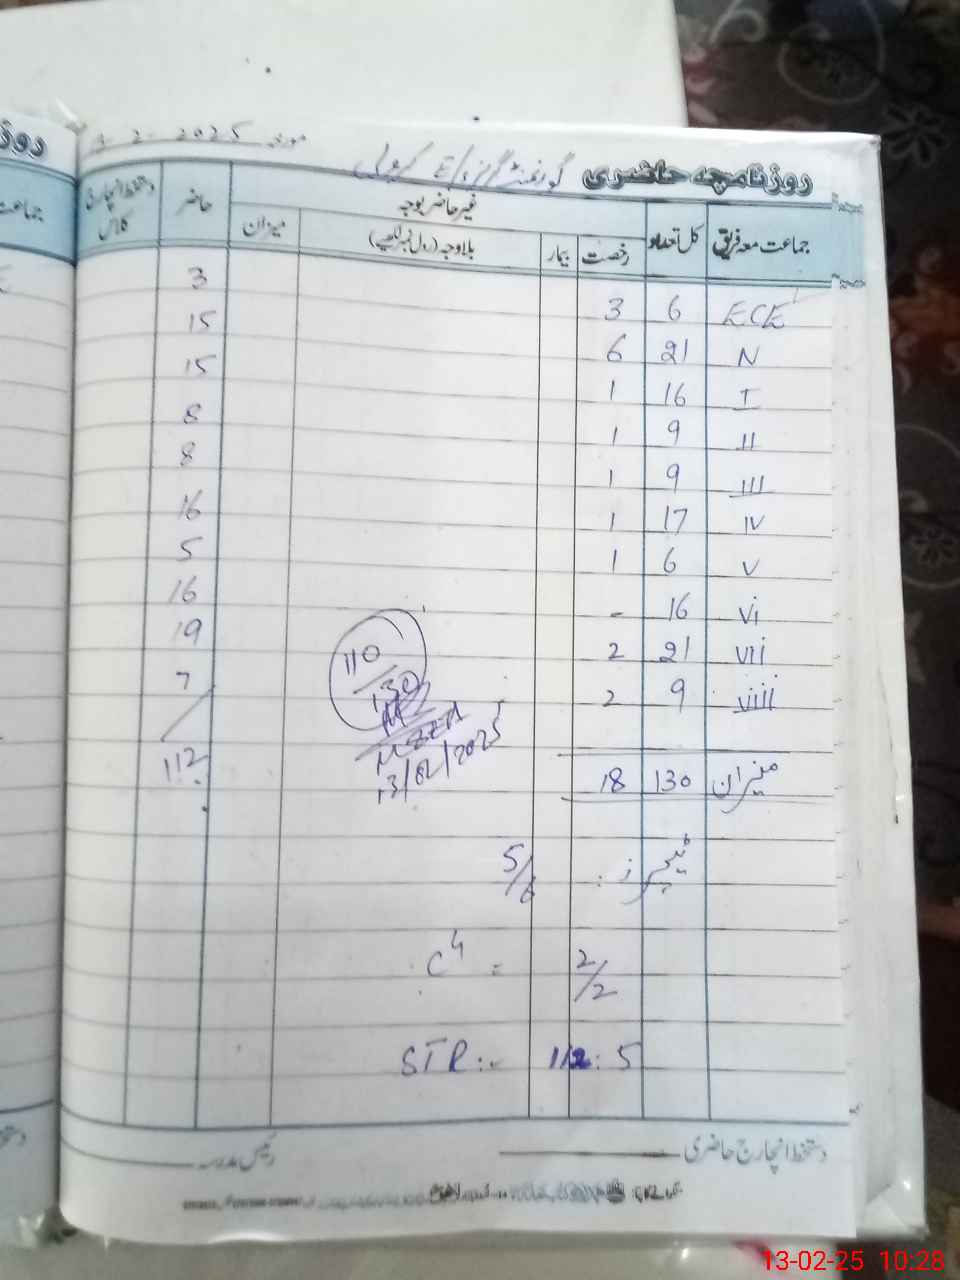 روزنامچہ حاضری گورنمنٹ گرلز E/S مورخہ 2025-2-
جماعت معہ فریق کل تعداد غیر حاضر بوجہ حاضر دستخط انچارج کلاس
رخصت بیمار بلاوجہ (رول نمبر لکھیے) میزان
ECE 6 3 3
N 21 6 15
I 16 1 15
II 9 1 8
III 9 1 8
IV 17 1 16
V 6 1 5
Vi 16 - 16
Vii 21 2 19
Viii 9 2 7
میزان 130 18 112
110/130
13/02/2025
ٹیچرز: 5/6
C4 = 2/2
STR:- 112:5
دستخط انچارج حاضری رئیس مدرسہ
روز
جماعت
13-02-25 10:28